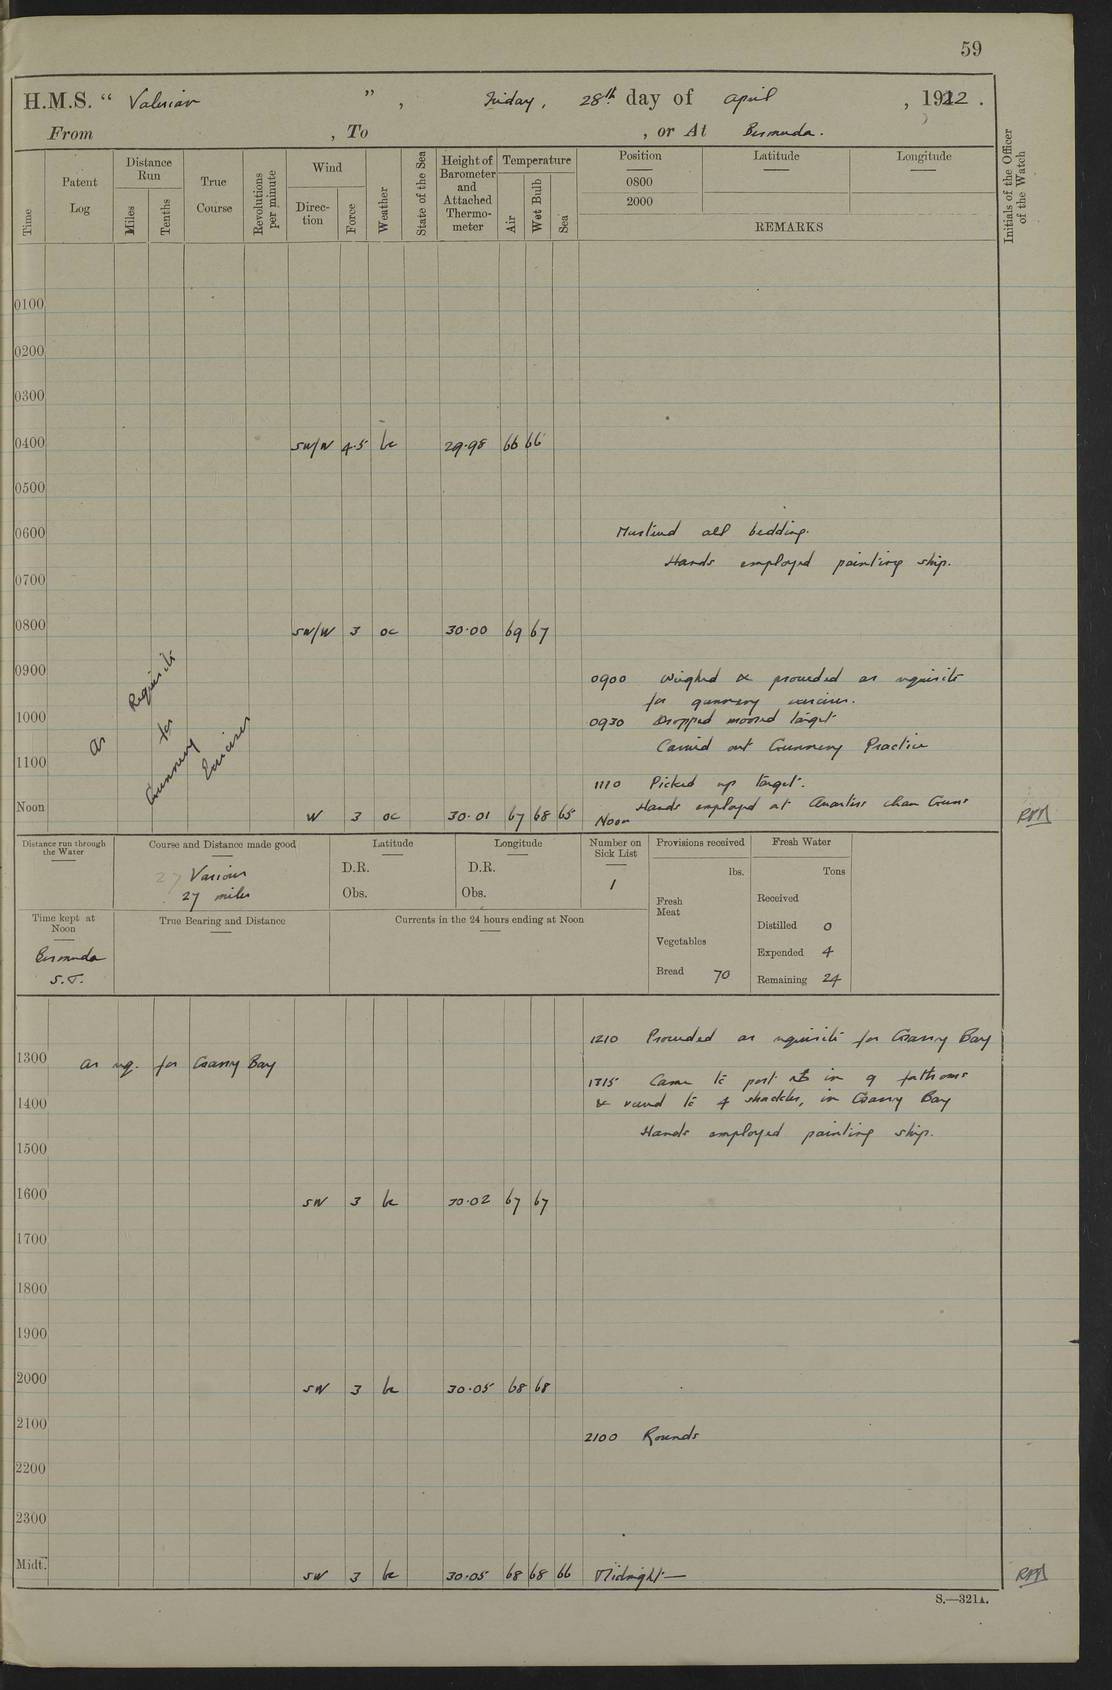 59
H.M.S. “ Valerian ” , Friday, 28th day of April , 1922 .
From , To , or At Bermuda.
Time
Patent Log
Distance Run
Miles
Tenths
True Course
Revolutions per minute
Wind
Direc-tion
Force
Weather
State of the Sea
Height of Barometer and Attached Thermo-meter
Temperature
Air
Wet Bulb
Sea
Position
0800
2000
Latitude
Longitude
REMARKS
Initials of the Officer of the Watch
0100
0200
0300
0400 SW/W 4.5 bc 29.98 66 66
0500
0600 Mustered all bedding.
Hands employed painting ship.
0700
0800 SW/W 3 oc 30.00 69 67
0900 0900 Weighed & proceeded as requisite
for gunnery exercises.
1000 0930 Dropped moored target
Carried out Gunnery Practice
1100
As Requisite for Gunnery Exercises
1110 Picked up target.
Hands employed at Quarters clean Guns
Noon W 3 oc 30.01 67 68 65 Noon
Distance run through the Water
Course and Distance made good
27 Various
27 miles
Latitude
D.R.
Obs.
Longitude
D.R.
Obs.
Number on Sick List
1
Provisions received
lbs.
Fresh Meat
Vegetables
Bread 70
Fresh Water
Tons
Received
Distilled 0
Expended 4
Remaining 24
Time kept at Noon
Bermuda
S.T.
True Bearing and Distance
Currents in the 24 hours ending at Noon
1210 Proceeded as requisite for Grassy Bay
1300 As req. for Grassy Bay
1315 Came to port in 9 fathoms
1400 & veered to 4 shackles, in Grassy Bay
Hands employed painting ship.
1500
1600 SW 3 bc 30.02 67 67
1700
1800
1900
2000 SW 3 bc 30.05 68 68
2100 2100 Rounds
2200
2300
Midt. SW 3 bc 30.05 68 68 66 Midnight—
S.—321A.